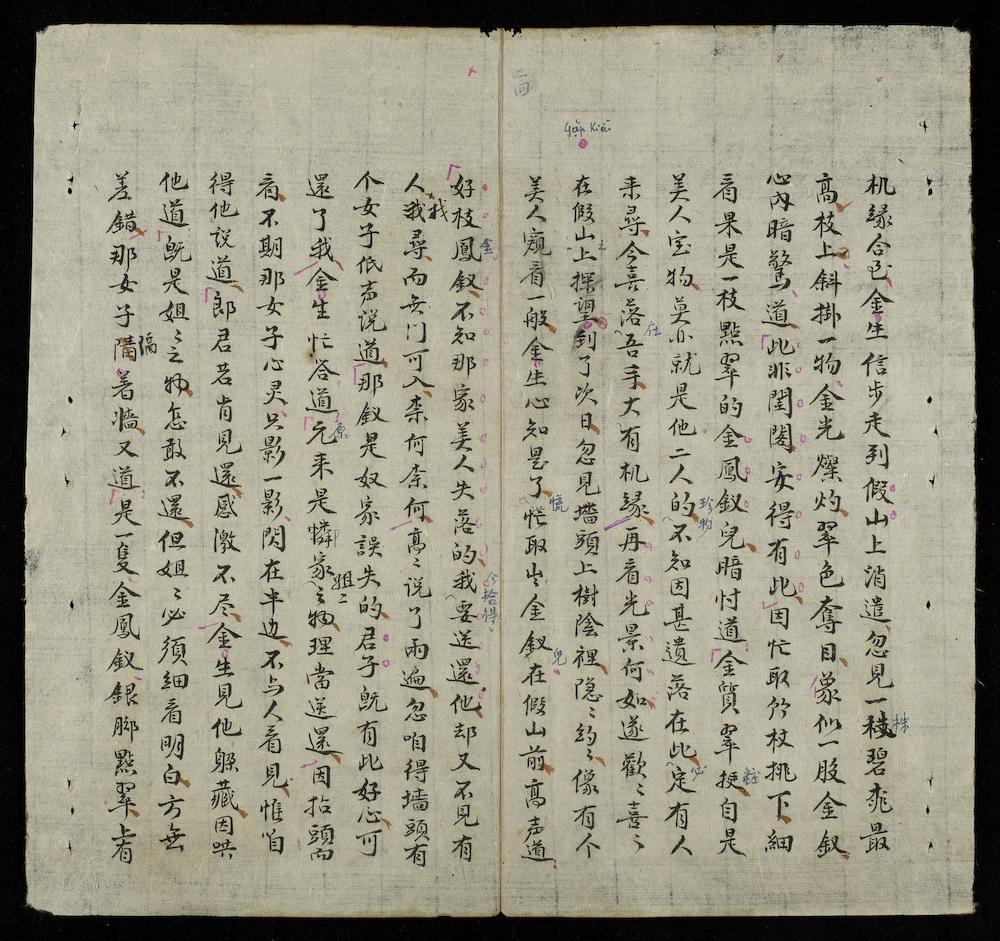 二回
Gặp Kiều
机缘合已金生信步走到假山上消遣忽見一枝碧桃最
株
高枝上斜掛一物金光燦灼翠色奪目像似一股金釵
心內暗驚道此非閨閣安得有此因忙取竹杖挑下細
看果是一枝點翠的金鳳釵兒暗忖道金質翠挭自是
粧
美人宝物莫亦就是他二人的不知因甚遺落在此定有人
珍物
必
来尋今喜落吾手大有机縁再看光景何如遂歡〻喜〻
在假山上探望到了次日忽見墻頭上樹陰裡隐〻約〻像有个
美人窺看一般金生心知是了忙取出金釵在假山前高声道
慌
兒
好枝鳳釵不知那家美人失落的我要送還他却又不見有
金
今拾得
人我尋而無门可入柰何柰何高〻说了兩遍忽咱得墻頭有
我
个女子低声说道那釵是奴家誤失的君子既有此好心可
還了我金生忙答道元来是憐家之物理當送還因抬頭而
原
姐〻
看不期那女子心灵只影一影閃在半边不与人看見惟咱
得他説道郎君若肯見還感激不尽金生見他躱藏因哄
他道既是姐〻之物怎敢不還但姐〻必須細看明白方無
差錯那女子隔着墻又道是一隻金鳳釵銀脚點翠上有
隔